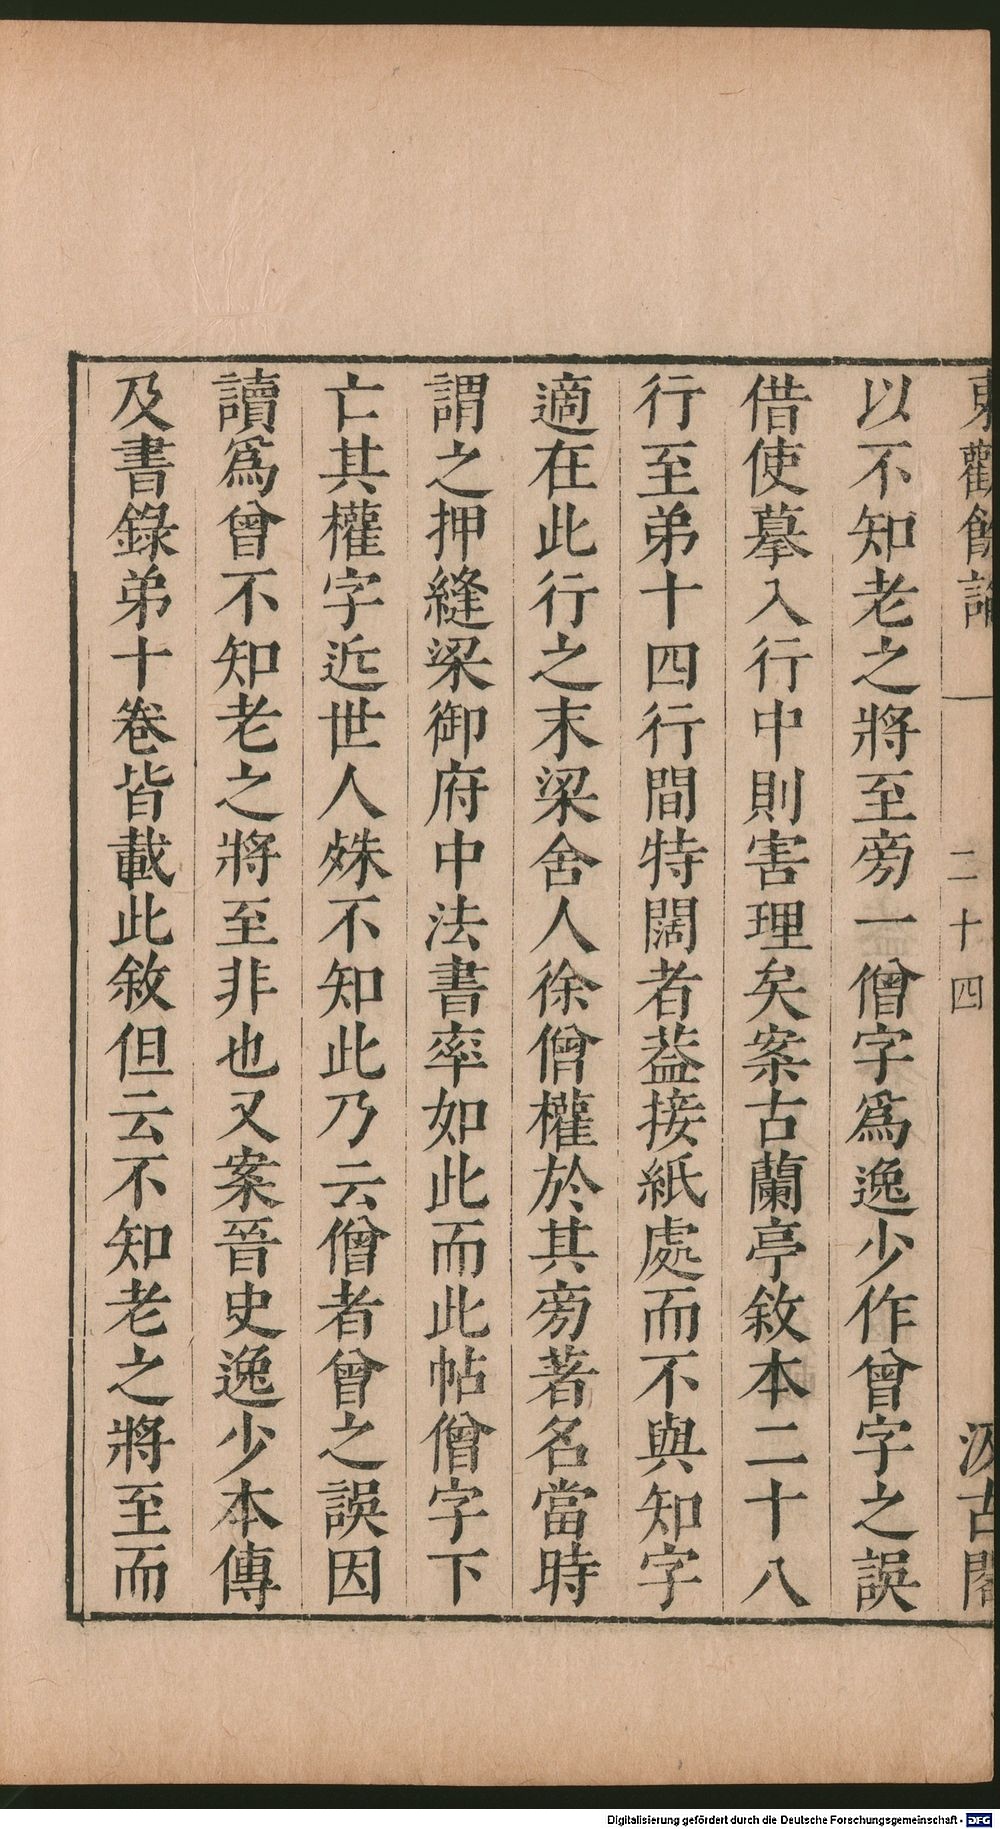 東觀餘論 一 二十四 汲古閣
以不知老之將至旁一僧字爲逸少作曾字之誤
借使摹入行中則害理矣案古蘭亭敘本二十八
行至弟十四行間特闊者葢接紙處而不與知字
適在此行之末梁舍人徐僧權於其旁著名當時
謂之押縫梁御府中法書率如此而此帖僧字下
亡其權字近世人殊不知此乃云僧者曾之誤因
讀爲曾不知老之將至非也又案晉史逸少本傳
及書錄弟十卷皆載此敘但云不知老之將至而
Digitalisierung gefördert durch die Deutsche Forschungsgemeinschaft - DFG